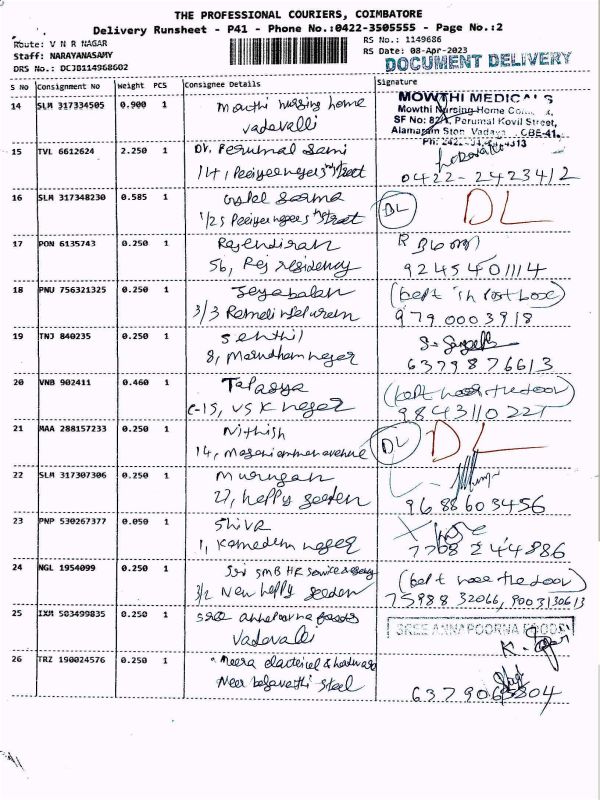 THE PROFESSIONAL COURIERS, COIMBATORE
Delivery Runsheet - P41 - Phone No.:0422-3505555 - Page No.:2
Route: V N R NAGAR
RS No.: 1149686
Staff: NARAYANASAMY
RS Date: 08-Apr-2023
DRS No.: DCJB114968602
DOCUMENT DELIVERY
S No Consignment No Weight PCS Consignee Details Signature
14 SLM 317334505 0.900 1 Mowthi nursing home
vadavalli
MOWTHI MEDICALS
Mowthi Nursing Home
SF No: 82A, Perumal Kovil Street,
CBE-41.
15 TVL 6612624 2.250 1 Dr. Perumal Sami
0422-2423412
16 SLM 317348230 0.585 1
DL DL
17 PON 6135743 0.250 1 Rajendiran
56, Raj residency
9245401114
18 PNU 756321325 0.250 1 Jeyabalan
(kept in post box)
3/3
9790003918
19 TNJ 840235 0.250 1 Senthil
8, Marudham nagar
6379876613
20 VNB 902411 0.460 1 Tapasya
(kept near the door)
C-15, VSK nagar
9843110221
21 MAA 288157233 0.250 1 Nithish
14, Mariamman avenue
DL DL
22 SLM 317307306 0.250 1 Murugan
27, happy garden
9688603456
23 PNP 530267377 0.050 1 Shiva
1, nagar
7708244886
24 NGL 1954099 0.250 1 Sri SMB HR Service
(kept near the door)
3/2 New happy garden
7598832066, 9003130613
25 IXM 503499835 0.250 1 sree annapoorna foods
vadavalli
SREE ANNAPOORNA FOODS
26 TRZ 190024576 0.250 1 Meera electrical & hardware
Near steel